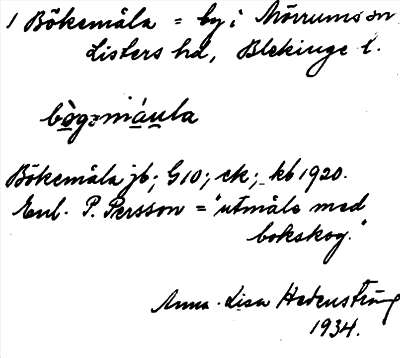 1 Bökemåla = by i Mörrums sn
Listers hd, Blekinge l.
bø̀gəmá̱u̱la
Bökemåla jb; G10; ek; kb 1920.
Enl. P. Persson = "utmåle med
bokskog."
Anna-Lisa Hedenström
1934.